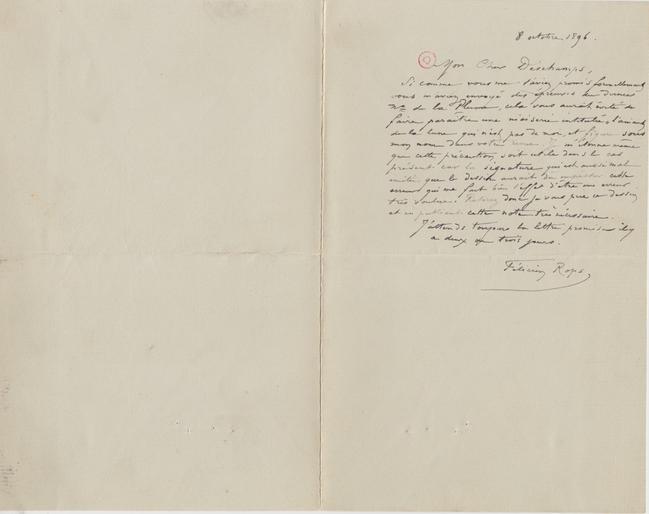 8 octobre 1896.
Mon Cher Deschamps,
Si comme vous me l'aviez promis formellement
vous m'aviez envoyé des épreuves du dernier
No de la Plume, cela vous aurait évité de
faire paraître une niaiserie intitulée, l'amant
de la lune qui n'est pas de moi, et figure sous
mon nom dans votre revue. Je m'étonne même
que cette précaution soit utile dans le cas
présent car la signature qui est aussi mal
imitée que le dessin aurait dû empêcher cette
erreur qui me fait bien l'effet d'être une erreur
très voulue. donc je vous prie ce dessin
et en publiant cette note très nécessaire.
J'attends toujours la lettre promise il y
a deux ou trois jours.
Félicien Rops